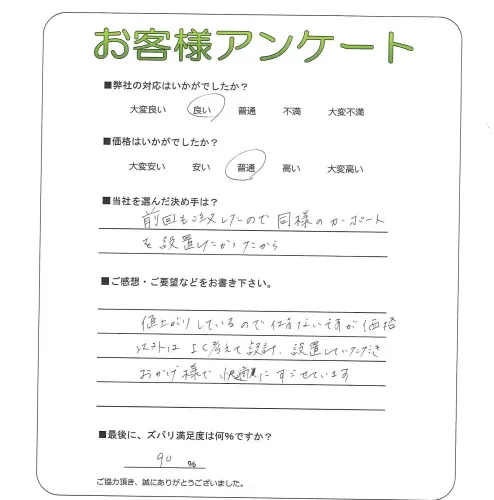 お客様アンケート
■弊社の対応はいかがでしたか？
大変良い 良い 普通 不満 大変不満
■価格はいかがでしたか？
大変安い 安い 普通 高い 大変高い
■当社を選んだ決め手は？
前回も注文したので同様のカーポート
を設置したかったから
■ご感想・ご要望などをお書き下さい。
値上がりしているので仕方ないですが価格
以外は よく考えて設計、設置していただき
おかげ様で 快適にすごせています
■最後に、ズバリ満足度は何%ですか？
90 %
ご協力頂き、誠にありがとうございました。